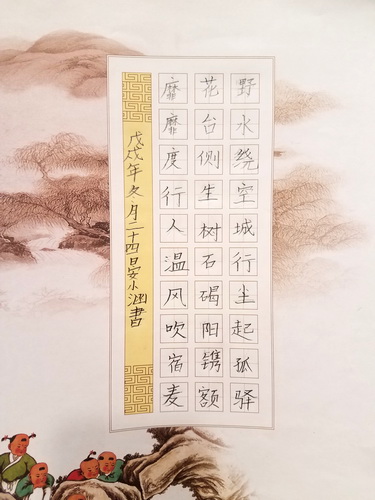 野水绕空城行尘起孤驿
花台侧生树石碣阳镌额
靡靡度行人温风吹宿麦
戊戌年冬月二十四日安小涵書